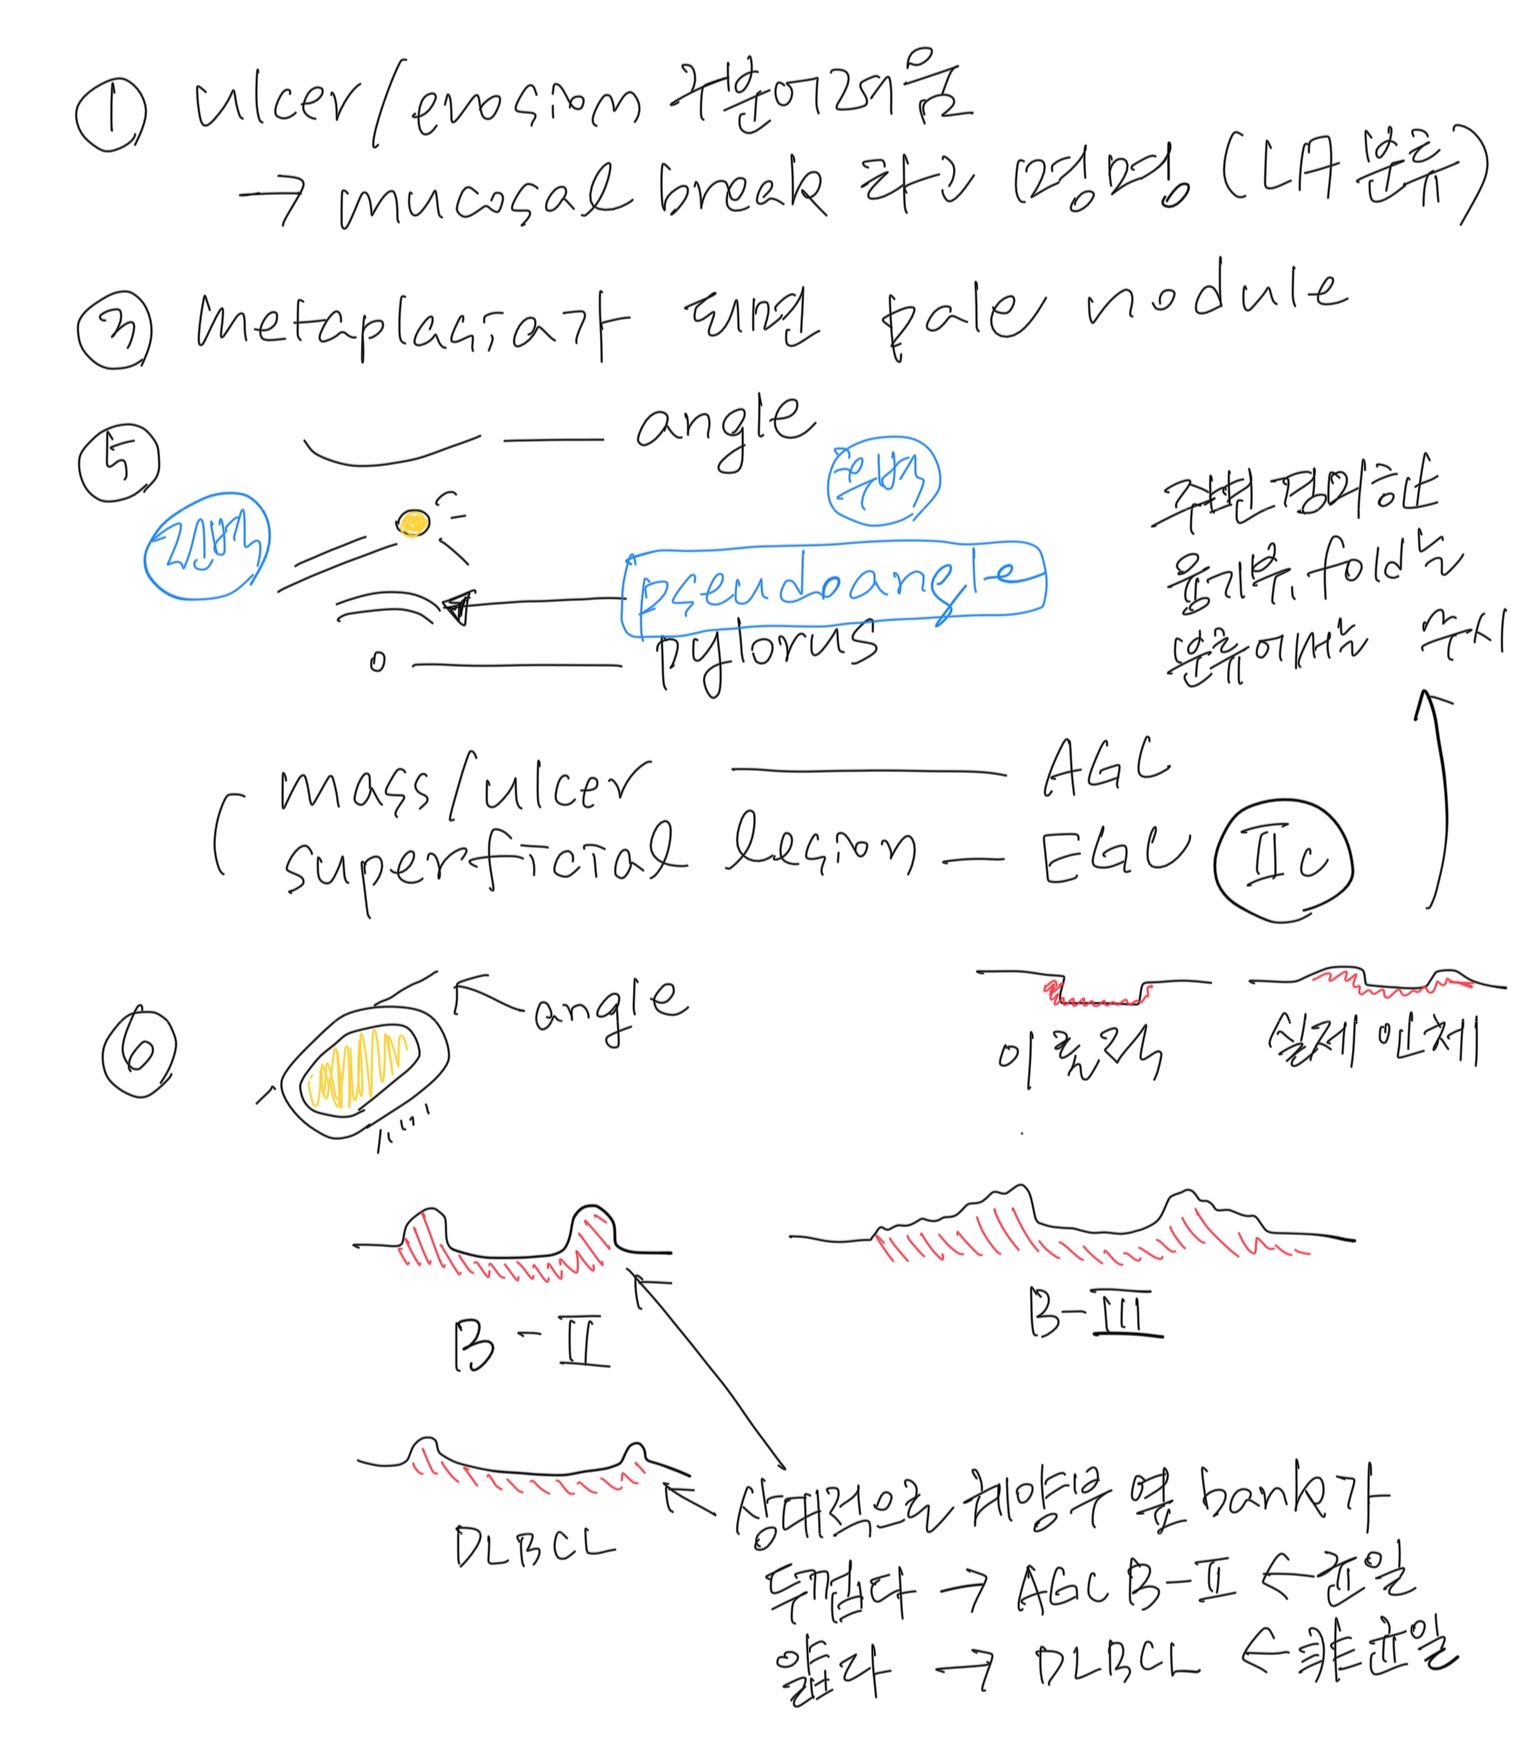 ① ulcer/erosion 구분어려움
→ mucosal break 라고 명명 (LA 분류)
③ metaplasia가 되면 pale nodule
⑤ angle
전벽
후벽
pseudoangle
pylorus
주변 경미한
융기부, fold는
분류에서는 무시
mass/ulcer — AGC
superficial lesion — EGC Ⅱc
이론적
실제 인체
⑥ angle
B-Ⅱ
B-Ⅲ
DLBCL
상대적으로 궤양부 옆 bank가
두껍다 → AGC B-Ⅱ ← 균일
얇다 → DLBCL ← 非균일